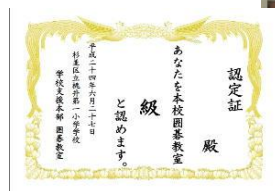 認定証
殿
あなたを本校囲碁教室
級
と認めます。
平成二十四年六月二十七日
杉並区立桃井第一小学校
学校支援本部 囲碁教室